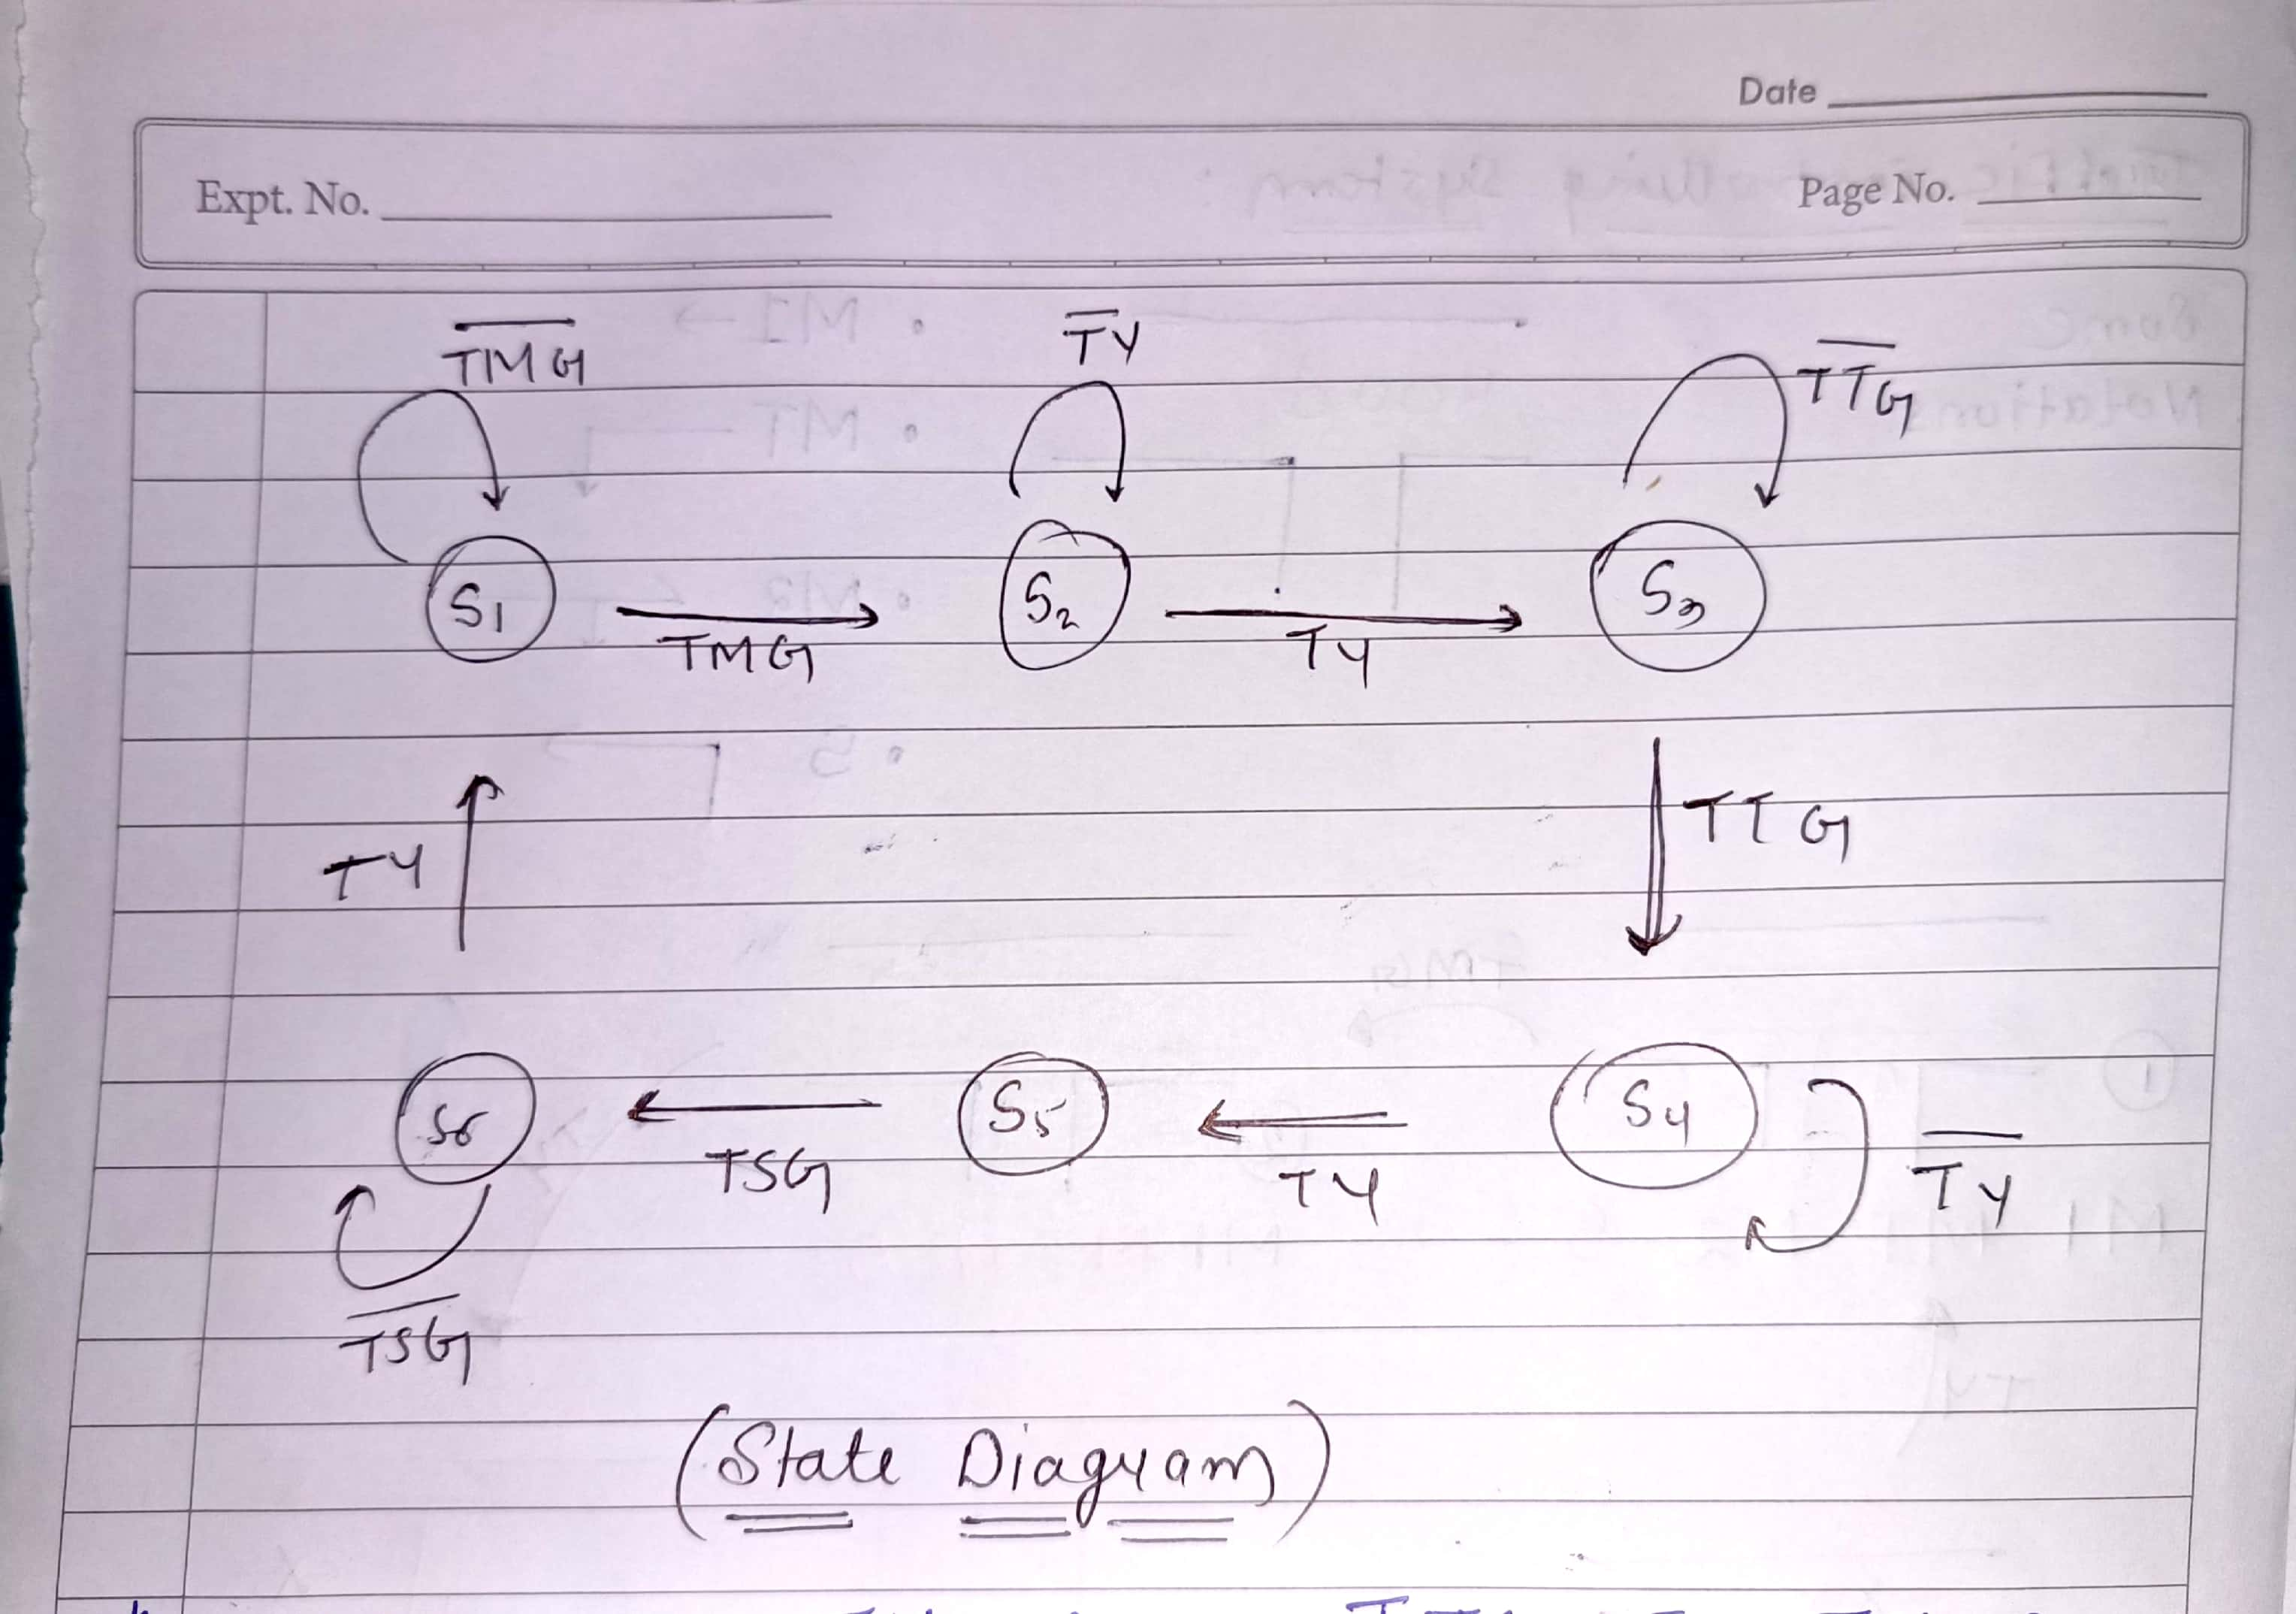 Date
Expt. No.
Page No.
T̅M̅G̅
T̅Y̅
T̅T̅G̅
S1
TMG
S2
TY
S3
TY
TTG
S6
TSG
S5
TY
S4
T̅Y̅
T̅S̅G̅
(State Diagram)